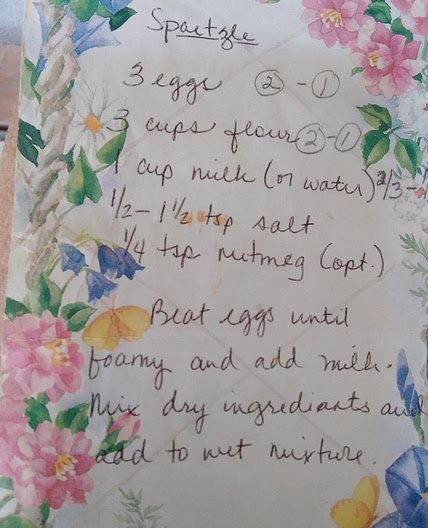 Spaetzle
3 eggs ② - ①
3 cups flour ② - ①
1 cup milk (or water) 2/3 -
1/2 - 1 1/2 tsp salt
1/4 tsp nutmeg (opt.)
Beat eggs until
foamy and add milk.
Mix dry ingrediants and
add to wet mixture.